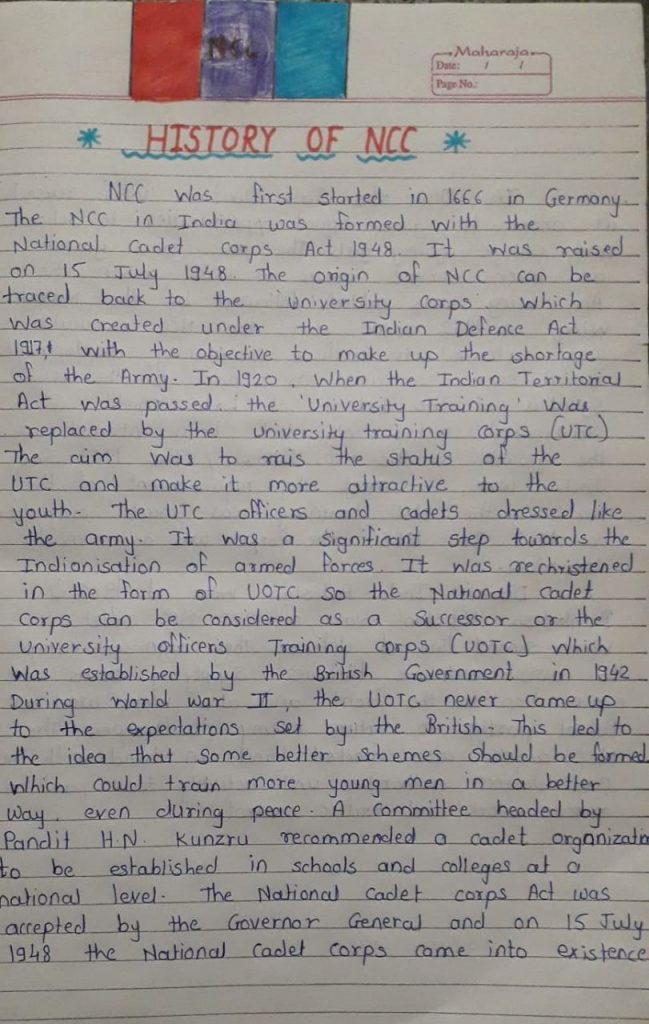 NCC
Maharaja
Date: / /
Page No.:
* HISTORY OF NCC *
NCC was first started in 1666 in Germany.
The NCC in India was formed with the
National Cadet Corps Act 1948. It was raised
on 15 July 1948. The origin of NCC can be
traced back to the University Corps. Which
was created under the Indian Defence Act
1917, with the objective to make up the shortage
of the Army. In 1920, When the Indian Territorial
Act was passed. the 'University Training' was
replaced by the university training corps (UTC)
The aim was to rais the status of the
UTC and make it more attractive to the
youth. The UTC officers and cadets dressed like
the army. It was a significant step towards the
Indionisation of armed forces. It was rechristened
in the form of UOTC so the National cadet
corps can be considered as a Successor or the
University officers Training corps (UOTC) Which
was established by the British Government in 1942
During World War II, the UOTC never came up
to the expectations set by the British. This led to
the idea that Some better schemes should be formed
Which could train more young men in a better
way, even during peace. A committee headed by
Pandit H.N. Kunzru recommended a cadet orgnnizatio
to be established in schools and colleges at a
national level. The National Cadet corps Act was
accepted by the Governor General and on 15 July
1948 the National Cadet Corps came into existence